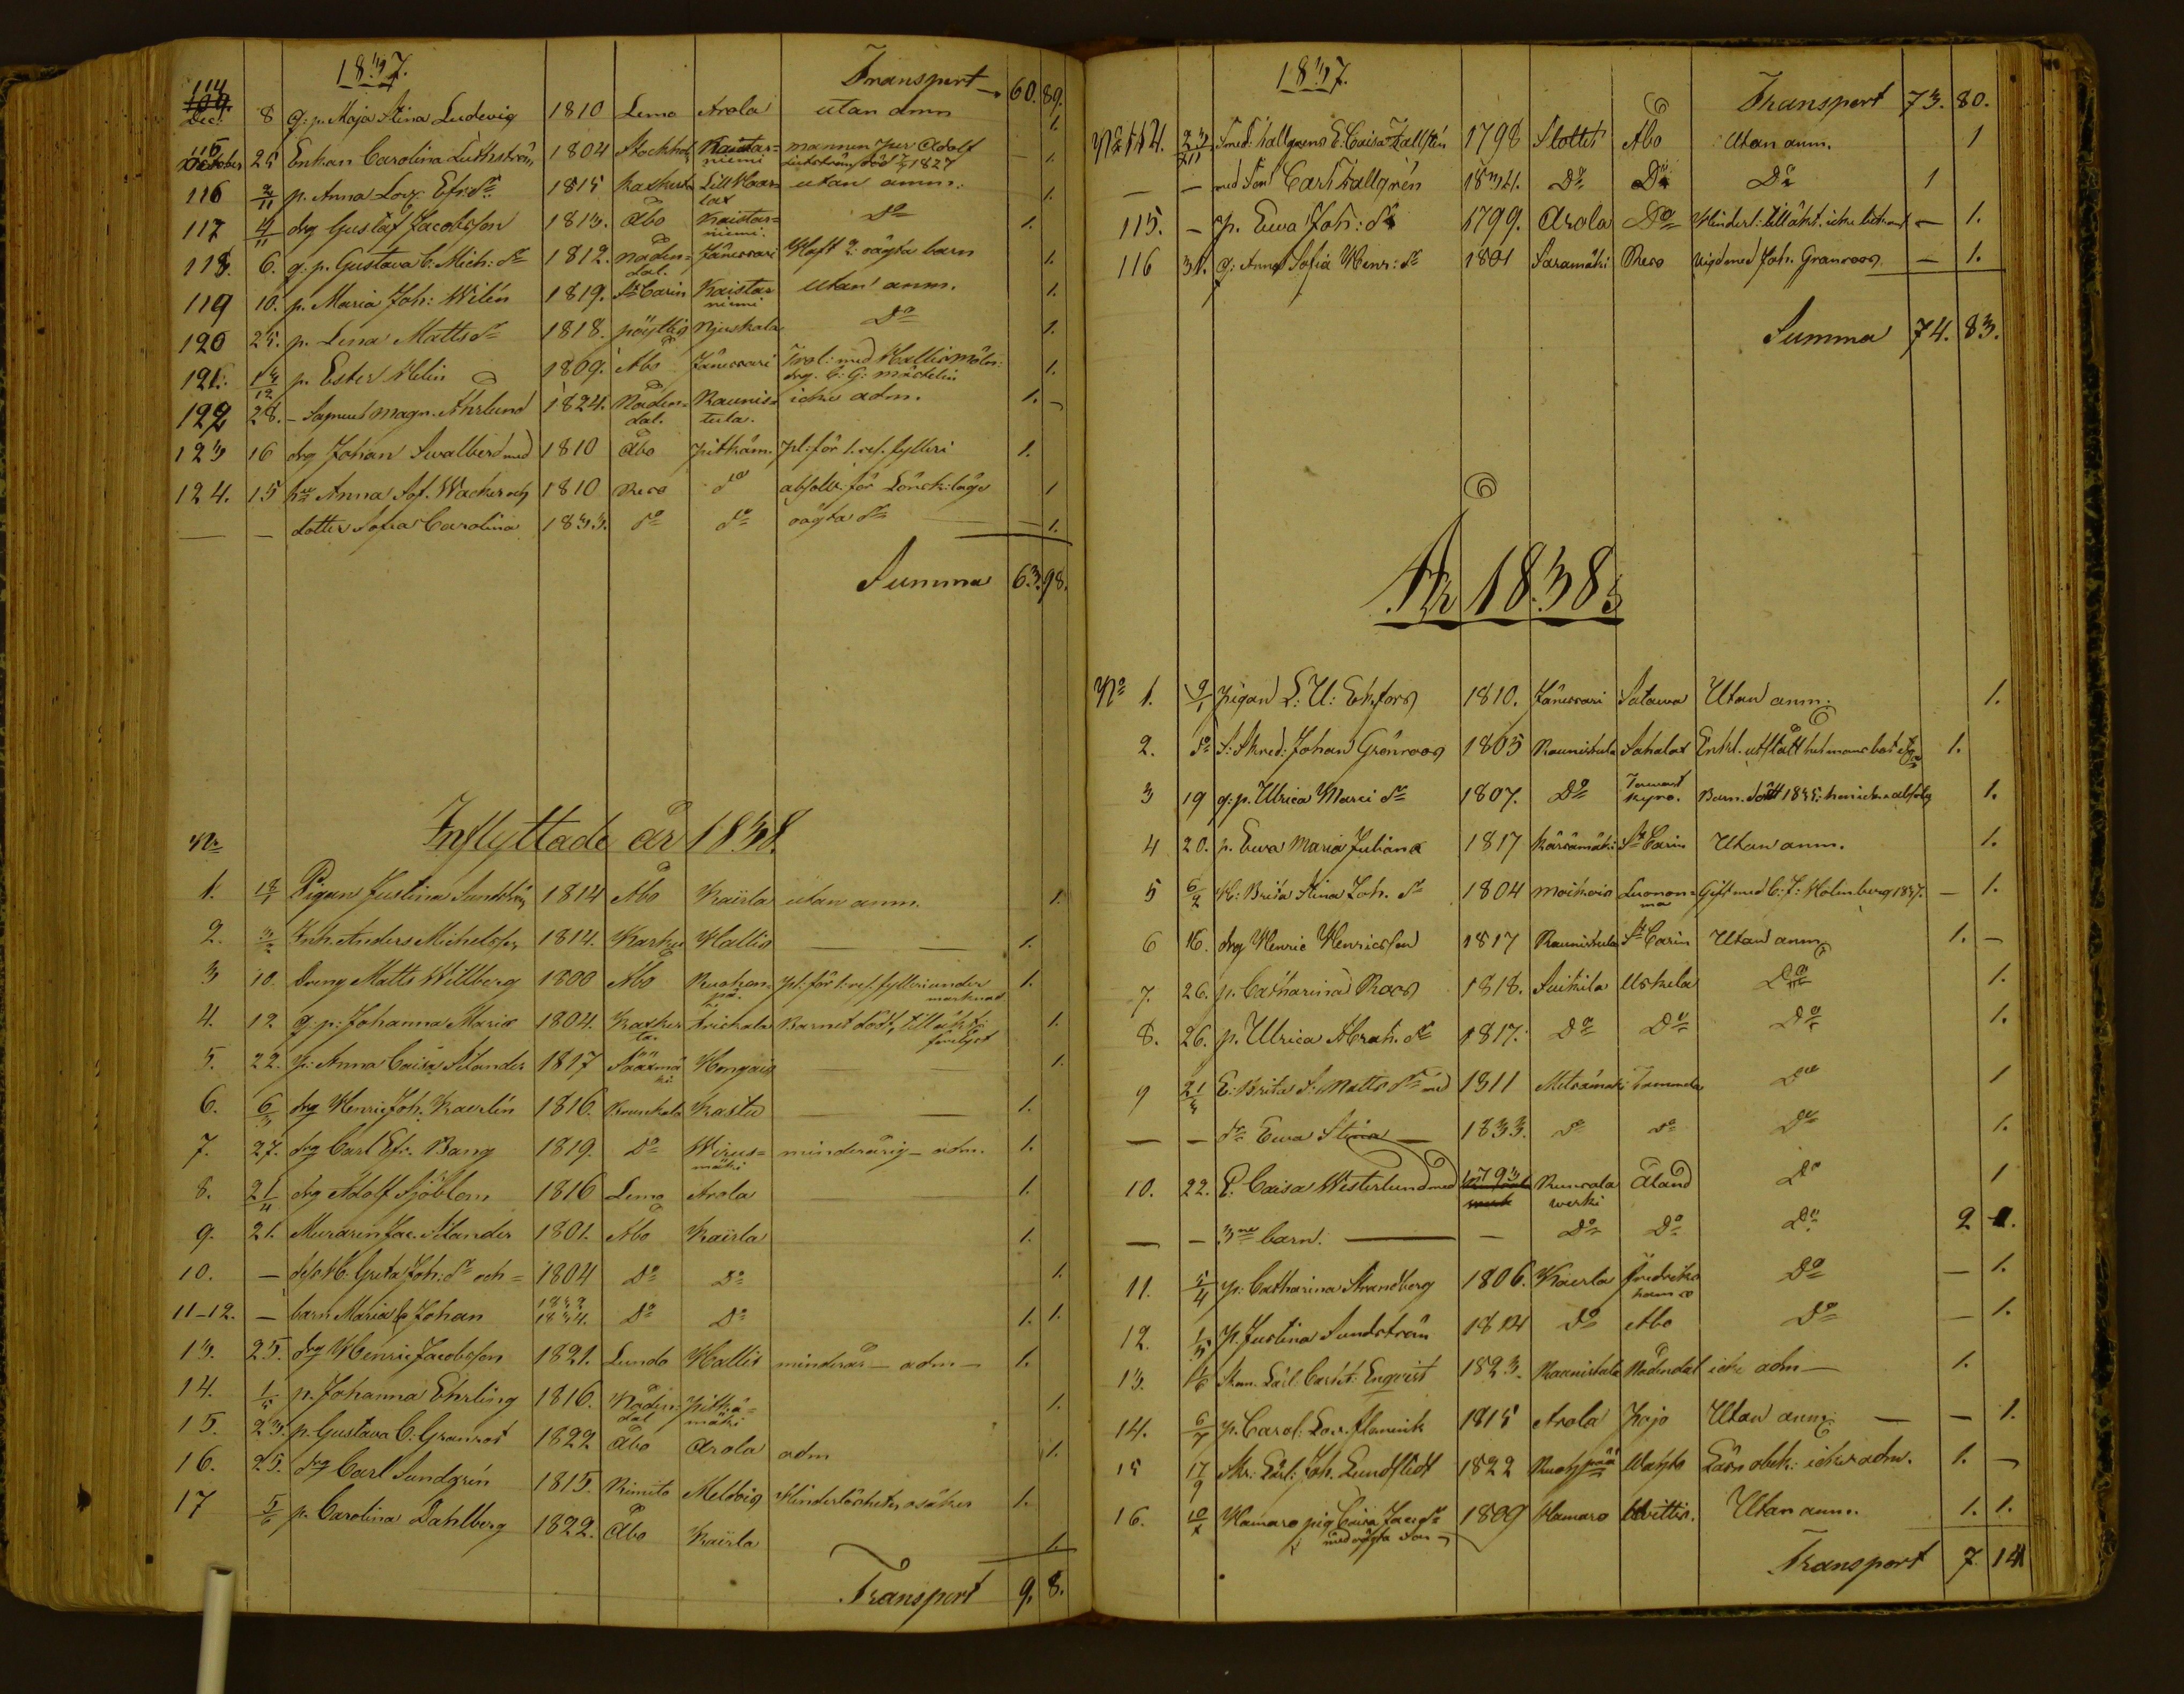 1837.
Transport 60. 89.
114 Dec. 8 g: p. Maja Stina Ludevig 1810 Lemo Arola utan anm 1.
115 October 25 Enkan Carolina Lutström 1804 Stockholm Kaistar= niemi mannen Per Adolf Lutström död 1827 — 1.
116 2/11 p. Anna Lov. Efr: dr 1815 Kaskerta Lill Haar= lax utan anm. 1.
117 4/11 drg Gustaf Jacobsson 1813. Åbo Kaistar= niemi. Do 1.
118. 6. g: p. Gustava C. Mich: dr 1812. Nåden= dal. Jänessari Haft 2: oägta barn 1.
119 10. p. Maria Joh: Wilén 1819. St Carin Kaistar niemi Utan anm. 1.
120 25. p. Lena Matts dr 1818. pöyttis Njuskala Do 1.
121. 13/12 p. Ester Helin 1809. Åbo Jänessari Trol: med Hallis möln: drg. C: G: Martelin 1.
122 28. — Samuel Magn. Åhrlund 1824. Nåden= dal. Raunis= tula. icke adm. 1. —
123 16 drg Johan Swalberd med 1810 Åbo pitkäm. pl: för 1. res. fylleri 1.
124. 15 hu Anna Sof. Wacker och 1810 Reso do absolv: för Lönsk: läge 1
— — dotter Sofia Carolina 1833. do do oägta dr — 1.
Summa 63. 98.
Inflyttade år 1838.
No
1. 18/1 Pigan Justina Sundström 1814 Åbo Kairla utan anm. 1.
2. 3/2 Inh. Anders Michelsson 1814. Karku Hallis — — 1.
3 10. Dreng Matts Willberg 1800 Åbo Ruohon= pä. pl: för 1: res. fylleri under marknad 1.
4. 12 g: p: Johanna Maria 1804. Kasker ta. Arichala Barnet dödt, tillåkt: 1.
5. 22. p: Anna Caisa Selander 1817 Sääxmä ki. Hongais — — 1.
6. 6/3 drg Henric Joh. Kaerlén 1816. Kouskala Kastu — — 1.
7. 27. drg Carl Efr. Bang 1819. Do Wirus= mäki minderårig — adm. 1.
8. 21/11 drg Adolf Sjöblom 1816 Lemo Arola 1.
9. 21. Muraren Jac. Selander 1801. Åbo Kairla 1.
10. — dess H: Greta Joh: dr och = 1804 Do Do 1.
11-12. — barn Maria & Johan 1832 1834. Do Do 1. 1.
13. 25. drg Henric Jacobsson 1821. Lundo Hallis minderår — adm — 1.
14. 1/5 p. Johanna Ehrling 1816. Nåden dal Pitkä= mäki 1.
15. 23. p. Gustava C: Granrot 1822 Åbo Arola adm 1.
16. 25. drg Carl Sundgrén 1815. Rimito Meltois Hinderlösheten osäker 1.
17 5/6 p. Carolina Dahlberg 1822. Åbo Kairla 1.
Transport 9. 8.
1837.
Transport 73. 80.
No 114. 23/11 Smed: Hallgrens E: Caisa Hallstén 1798 Slottet Åbo Utan anm. 1
— — med Son Carl Hallgrén 1834. Do Do Do 1
115. — p. Eva Joh: dr 1799. Arola Do Hinderl: tillåkt. icke — 1.
116 31. g: Anna Sofia Henr: dr 1801 Saramäki Reso vigd med Joh. Granroos — 1.
Summa 74. 83.
År 1838
No 1. 9/1 pigan L: U: Ekfors 1810. Jänessari Satawa Utan anm. 1.
2. do S: Skred: Johan Grönroos 1805 Raunistula Sahalax Enkl. utstått husmans bot 1.
3 19 g: p. Ulrica Marci dr 1807. Do Tawast kyro. Barn. född 1835: 1.
4 20. p. Eva Maria Juliana 1817 Kärsämäki St Carin Utan anm. 1.
5 6/2 H: Brita Stina Joh. dr 1804 Moikois Luonon= ma Gift med C: J: Holmberg 1837. — 1.
6 16. drg Henric Henricsson 1817 Raunistula St Carin Utan anm 1. —
7. 26. p. Catharina Roos 1818. Suikila Uskela Do 1.
8. 26. p. Ulrica Abrah. dr 1817. Do Do Do 1.
9 21/3 E: Brita S: Matts dr med 1811 Metsämäki Tammela Do 1
— — dr Eva Stina — 1833. do do Do 1.
10. 22. E. Caisa Westerlund med 1793 Runsala werki Åland Do 1
— — 3ne barn. — — Do Do Do 2 1.
11. 5/4 p: Catharina Strandberg 1806. Kaerla Fredriks hamn Do — 1.
12. 1/5 p. Justina Sundström 1814 Do Åbo Do — 1.
13. 1/6 Skom. Lärl: Enqvist 1823. Raunistula Nådendal icke adm — 1.
14. 6/7 p. Carol: Lov. Flamink 1815 Arola Pojo Utan anm: — — 1.
15 17/9 Skr: Lärl: Joh. Lundstedt 1822 Ruohpää Wahto Läsn obek: icke adm. 1. —
16. 10/x Hamaro pig Caisa Jacs dr 1809 Hamaro Wittis. Utan anm. 1. 1.
med oägta Son
Transport 7. 14